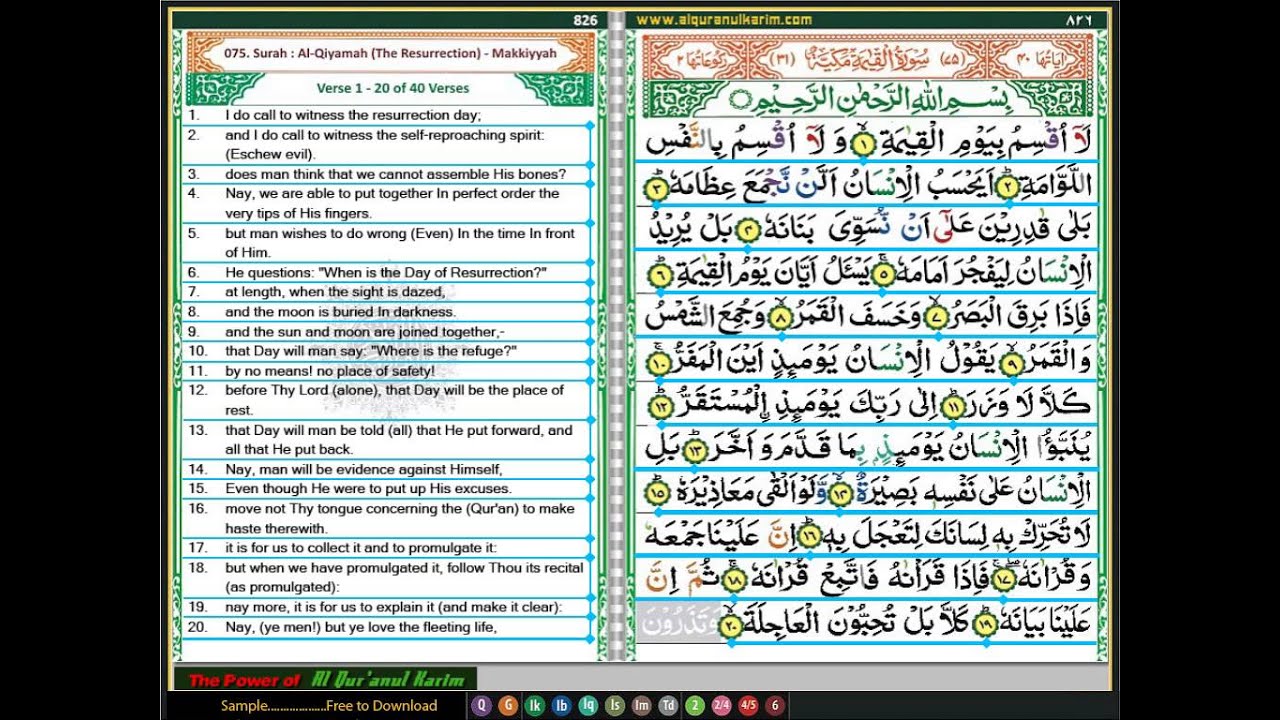 826
075. Surah : Al-Qiyamah (The Resurrection) - Makkiyyah
Verse 1 - 20 of 40 Verses
1. I do call to witness the resurrection day;
2. and I do call to witness the self-reproaching spirit:
(Eschew evil).
3. does man think that we cannot assemble His bones?
4. Nay, we are able to put together In perfect order the
very tips of His fingers.
5. but man wishes to do wrong (Even) In the time In front
of Him.
6. He questions: "When is the Day of Resurrection?"
7. at length, when the sight is dazed,
8. and the moon is buried In darkness.
9. and the sun and moon are joined together,-
10. that Day will man say: "Where is the refuge?"
11. by no means! no place of safety!
12. before Thy Lord (alone), that Day will be the place of
rest.
13. that Day will man be told (all) that He put forward, and
all that He put back.
14. Nay, man will be evidence against Himself,
15. Even though He were to put up His excuses.
16. move not Thy tongue concerning the (Qur'an) to make
haste therewith.
17. it is for us to collect it and to promulgate it:
18. but when we have promulgated it, follow Thou its recital
(as promulgated):
19. nay more, it is for us to explain it (and make it clear):
20. Nay, (ye men!) but ye love the fleeting life,
www.alquranulkarim.com ٨٢٦
اٰيَاتُهَا ٤٠ (٧٥) سُوْرَةُ الْقِيٰمَةِ مَكِّيَّةٌ (٣١) رُكُوْعَاتُهَا ٢
بِسْمِ اللهِ الرَّحْمٰنِ الرَّحِيْمِ
لَاۤ اُقْسِمُ بِيَوْمِ الْقِيٰمَةِ ١ وَ لَاۤ اُقْسِمُ بِالنَّفْسِ
اللَّوَّامَةِ ٢ اَيَحْسَبُ الْاِنْسَانُ اَلَّنْ نَّجْمَعَ عِظَامَهٗ ٣
بَلٰى قٰدِرِيْنَ عَلٰۤى اَنْ نُّسَوِّيَ بَنَانَهٗ ٤ بَلْ يُرِيْدُ
الْاِنْسَانُ لِيَفْجُرَ اَمَامَهٗ ٥ يَسْـَٔلُ اَيَّانَ يَوْمُ الْقِيٰمَةِ ٦
فَاِذَا بَرِقَ الْبَصَرُ ٧ وَخَسَفَ الْقَمَرُ ٨ وَجُمِعَ الشَّمْسُ
وَالْقَمَرُ ٩ يَقُوْلُ الْاِنْسَانُ يَوْمَىِٕذٍ اَيْنَ الْمَفَرُّ ١٠
كَلَّا لَا وَزَرَ ١١ اِلٰى رَبِّكَ يَوْمَىِٕذِ ِۨالْمُسْتَقَرُّ ١٢
يُنَبَّؤُا الْاِنْسَانُ يَوْمَىِٕذٍۭ بِمَا قَدَّمَ وَ اَخَّرَ ١٣ بَلِ
الْاِنْسَانُ عَلٰى نَفْسِهٖ بَصِيْرَةٌ ١٤ وَّلَوْ اَلْقٰى مَعَاذِيْرَهٗ ١٥
لَا تُحَرِّكْ بِهٖ لِسَانَكَ لِتَعْجَلَ بِهٖ ١٦ اِنَّ عَلَيْنَا جَمْعَهٗ
وَ قُرْاٰنَهٗ ١٧ فَاِذَا قَرَاْنٰهُ فَاتَّبِعْ قُرْاٰنَهٗ ١٨ ثُمَّ اِنَّ
عَلَيْنَا بَيَانَهٗ ١٩ كَلَّا بَلْ تُحِبُّوْنَ الْعَاجِلَةَ ٢٠ وَتَذَرُوْنَ
The Power of Al Qur'anul Karim
Sample...................Free to Download Q G Ik Ib Iq Is Im Td 2 2/4 4/5 6